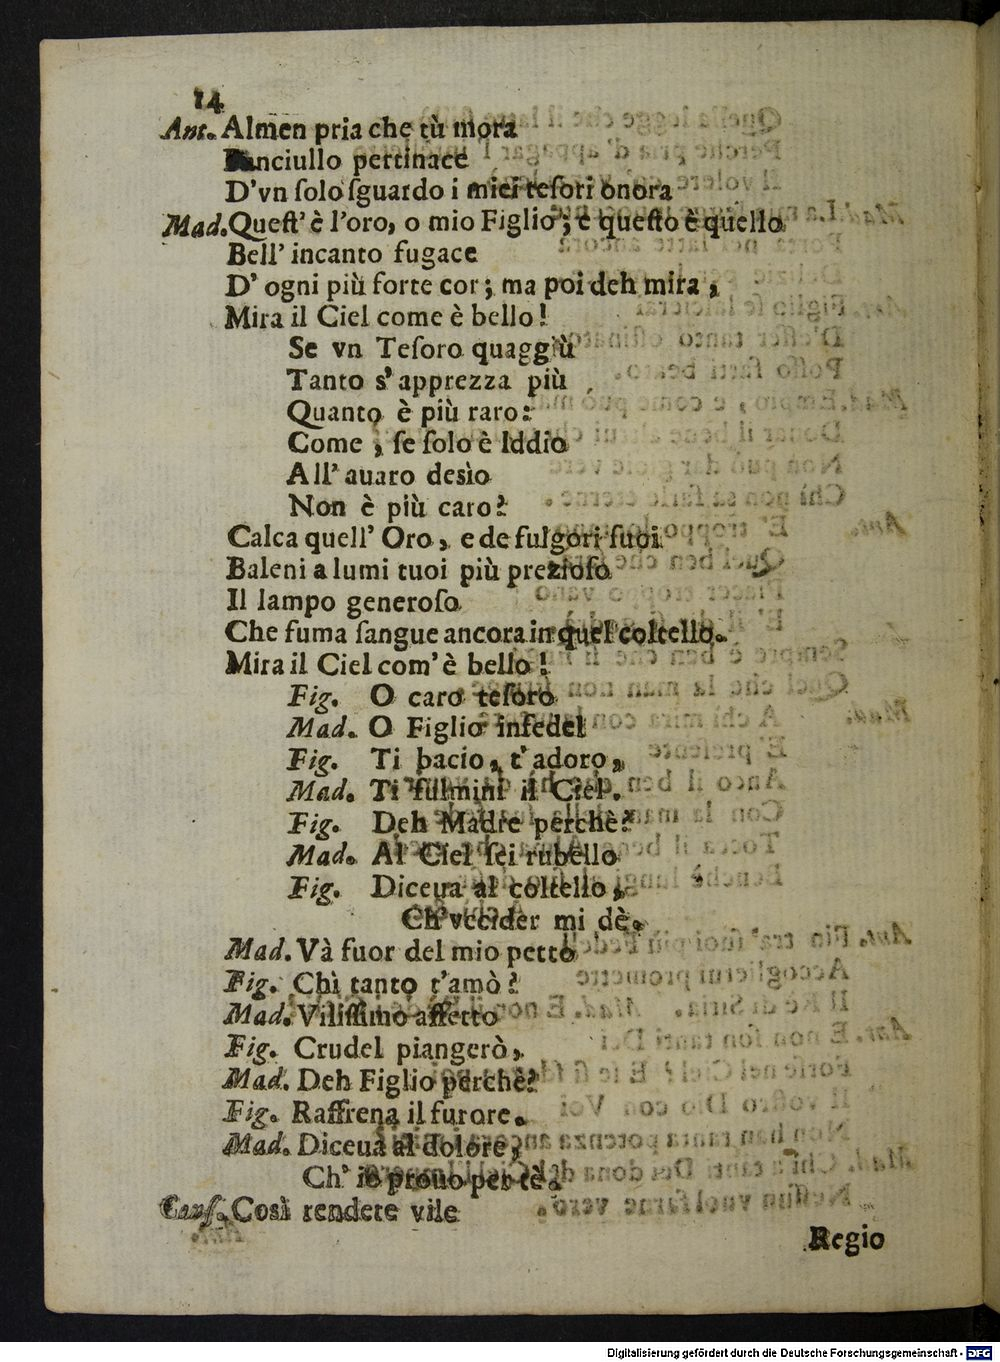 14
Ant. Almen pria che tù mora
Fanciullo pertinace
D'vn ſolo ſguardo i miei teſori onora
Mad. Queſt' è l'oro, o mio Figlio; e queſto è quello
Bell' incanto fugace
D' ogni più forte cor; ma poi deh mira,
Mira il Ciel come è bello!
Se vn Teſoro quaggiù
Tanto s' apprezza più
Quanto è più raro:
Come, ſe ſolo è Iddio
All' auaro desìo
Non è più caro?
Calca quell' Oro, e de fulgori ſuoi
Baleni a lumi tuoi più prezioſo
Il lampo generoſo
Che fuma ſangue ancora in quel coltello.
Mira il Ciel com' è bello!
Fig. O caro teſoro
Mad. O Figlio infedel
Fig. Ti bacio, t' adoro,
Mad. Ti fulmini il Ciel.
Fig. Deh Madre perchè?
Mad. Al Ciel ſei rubello
Fig. Diceua al coltello,
Ch' vccider mi dè.
Mad. Và fuor del mio petto
Fig. Chì tanto t'amò?
Mad. Viliſſimo affetto
Fig. Crudel piangerò,
Mad. Deh Figlio perchè?
Fig. Raffrena il furore.
Mad. Diceua al dolore,
Ch' io prouo per tè.
Così rendete vile
Regio
Digitalisierung gefördert durch die Deutsche Forschungsgemeinschaft - DFG